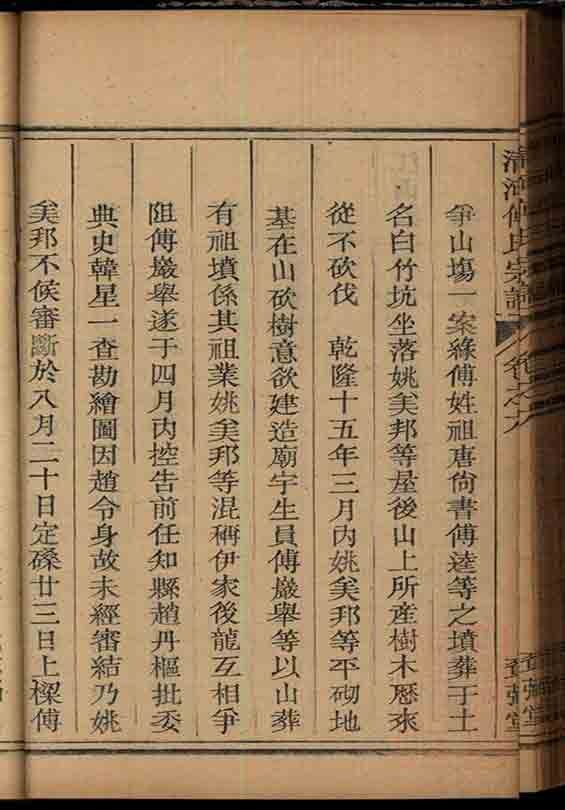 清河傅氏宗譜 卷之
爭山塲一案緣傅姓祖唐尙書傅逵等之墳葬于土
名白竹坑坐落姚美邦等屋後山上所産樹木歷來
從不砍伐 乾隆十五年三月內姚美邦等平砌地
基在山砍樹意欲建造廟宇生員傅嚴舉等以山葬
有祖墳係其祖業姚美邦等混稱伊家後龍互相爭
阻傅嚴舉遂于四月內控告前任知縣趙丹樞批委
典史韓星一查勘繪圖因趙令身故未經審結乃姚
美邦不候審斷於八月二十日定磉廿三日上樑傅